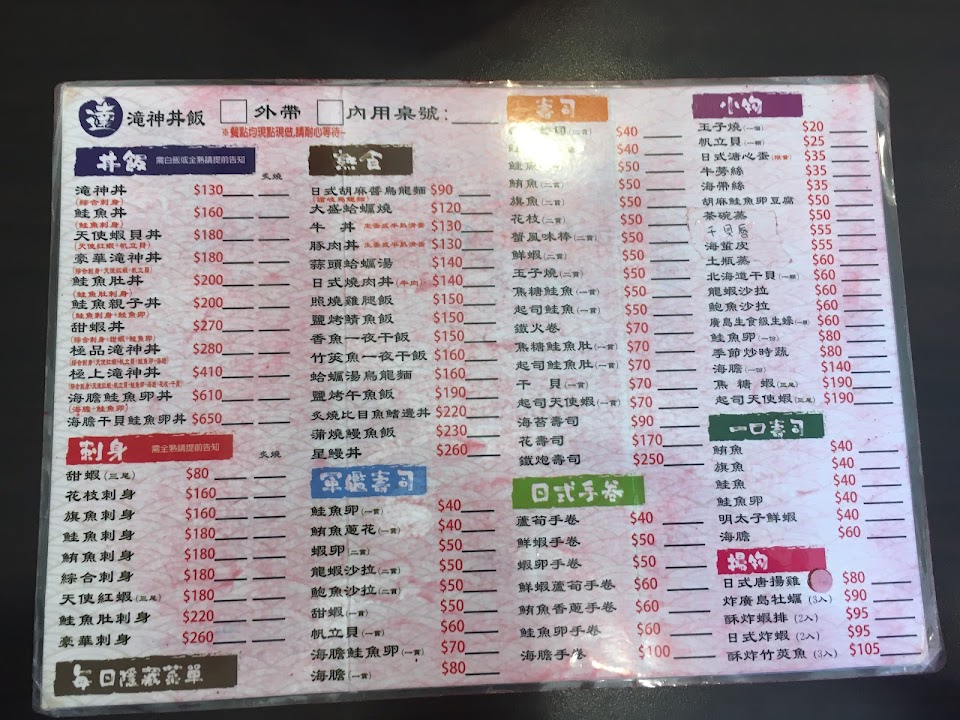 達 滝神丼飯 □外帶 □內用桌號:
※餐點均現點現做,請耐心等待~
丼飯 需白飯或全熟請提前告知
炙燒
滝神丼 $130
(綜合刺身)
鮭魚丼 $160
(鮭魚刺身)
天使蝦貝丼 $180
(天使紅蝦+帆立貝)
豪華滝神丼 $180
(綜合刺身+天使紅蝦+帆立貝)
鮭魚肚丼 $200
(鮭魚肚刺身)
鮭魚親子丼 $200
(鮭魚刺身+鮭魚卵)
甜蝦丼 $270
(綜合刺身+甜蝦+鮭魚卵)
極品滝神丼 $280
極上滝神丼 $410
海膽鮭魚卵丼 $610
(海膽+鮭魚卵)
海膽干貝鮭魚卵丼 $650
刺身 需全熟請提前告知
炙燒
甜蝦(三尾) $80
花枝刺身 $160
旗魚刺身 $160
鮭魚刺身 $180
鮪魚刺身 $180
綜合刺身 $180
天使紅蝦(三尾) $180
鮭魚肚刺身 $220
豪華刺身 $260
每日隱藏菜單
熟食
日式胡麻醬烏龍麵 $90
(讚岐烏龍麵)
大盛蛤蠣燒 $120
牛 丼 $130
豚肉丼 $130
蒜頭蛤蠣湯 $140
日式燒肉丼(牛肉) $140
照燒雞腿飯 $150
鹽烤鯖魚飯 $150
香魚一夜干飯 $150
竹筴魚一夜干飯 $160
蛤蠣湯烏龍麵 $160
鹽烤午魚飯 $190
炙燒比目魚鰭邊丼 $220
蒲燒鰻魚飯 $230
星鰻丼 $260
軍艦壽司
鮭魚卵(一貫) $40
鮪魚蔥花(一貫) $40
蝦卵(二貫) $50
龍蝦沙拉(二貫) $50
鮑魚沙拉(二貫) $50
甜蝦(一貫) $50
帆立貝(一貫) $60
海膽鮭魚卵(一貫) $70
海膽(一貫) $80
壽司
(二貫) $40
鮭 $40
鮭 $50
鮪魚(二貫) $50
旗魚(二貫) $50
花枝(二貫) $50
蟹風味棒(二貫) $50
鮮蝦(二貫) $50
玉子燒(二貫) $50
焦糖鮭魚(一貫) $50
起司鮭魚(一貫) $50
鐵火卷 $70
焦糖鮭魚肚(一貫) $70
起司鮭魚肚(一貫) $70
干 貝(一貫) $70
起司天使蝦(一貫) $70
海苔壽司 $90
花壽司 $170
鐵炮壽司 $250
日式手卷
蘆筍手卷 $40
鮮蝦手卷 $50
蝦卵手卷 $50
鮮蝦蘆筍手卷 $60
鮪魚香蔥手卷 $60
鮭魚卵手卷 $60
海膽手卷 $100
小物
玉子燒(一個) $20
帆立貝(一個) $25
日式溏心蛋(限量) $35
牛蒡絲 $35
海帶絲 $35
胡麻鮭魚卵豆腐 $50
茶碗蒸 $50
干貝唇 $55
海蜇皮 $55
土瓶蒸 $60
北海道干貝(一顆) $60
龍蝦沙拉 $60
鮑魚沙拉 $60
廣島生食級生蠔(一顆) $60
鮭魚卵(一份) $80
季節炒時蔬 $80
海膽(一份) $140
焦糖蝦(三尾) $190
起司天使蝦(三尾) $190
一口壽司
鮪魚 $40
旗魚 $40
鮭魚 $40
鮭魚卵 $40
明太子鮮蝦 $40
海膽 $60
揚物
日式唐揚雞 $80
炸廣島牡蠣(3入) $90
酥炸蝦排(2入) $95
日式炸蝦(2入) $95
酥炸竹筴魚(3入) $105